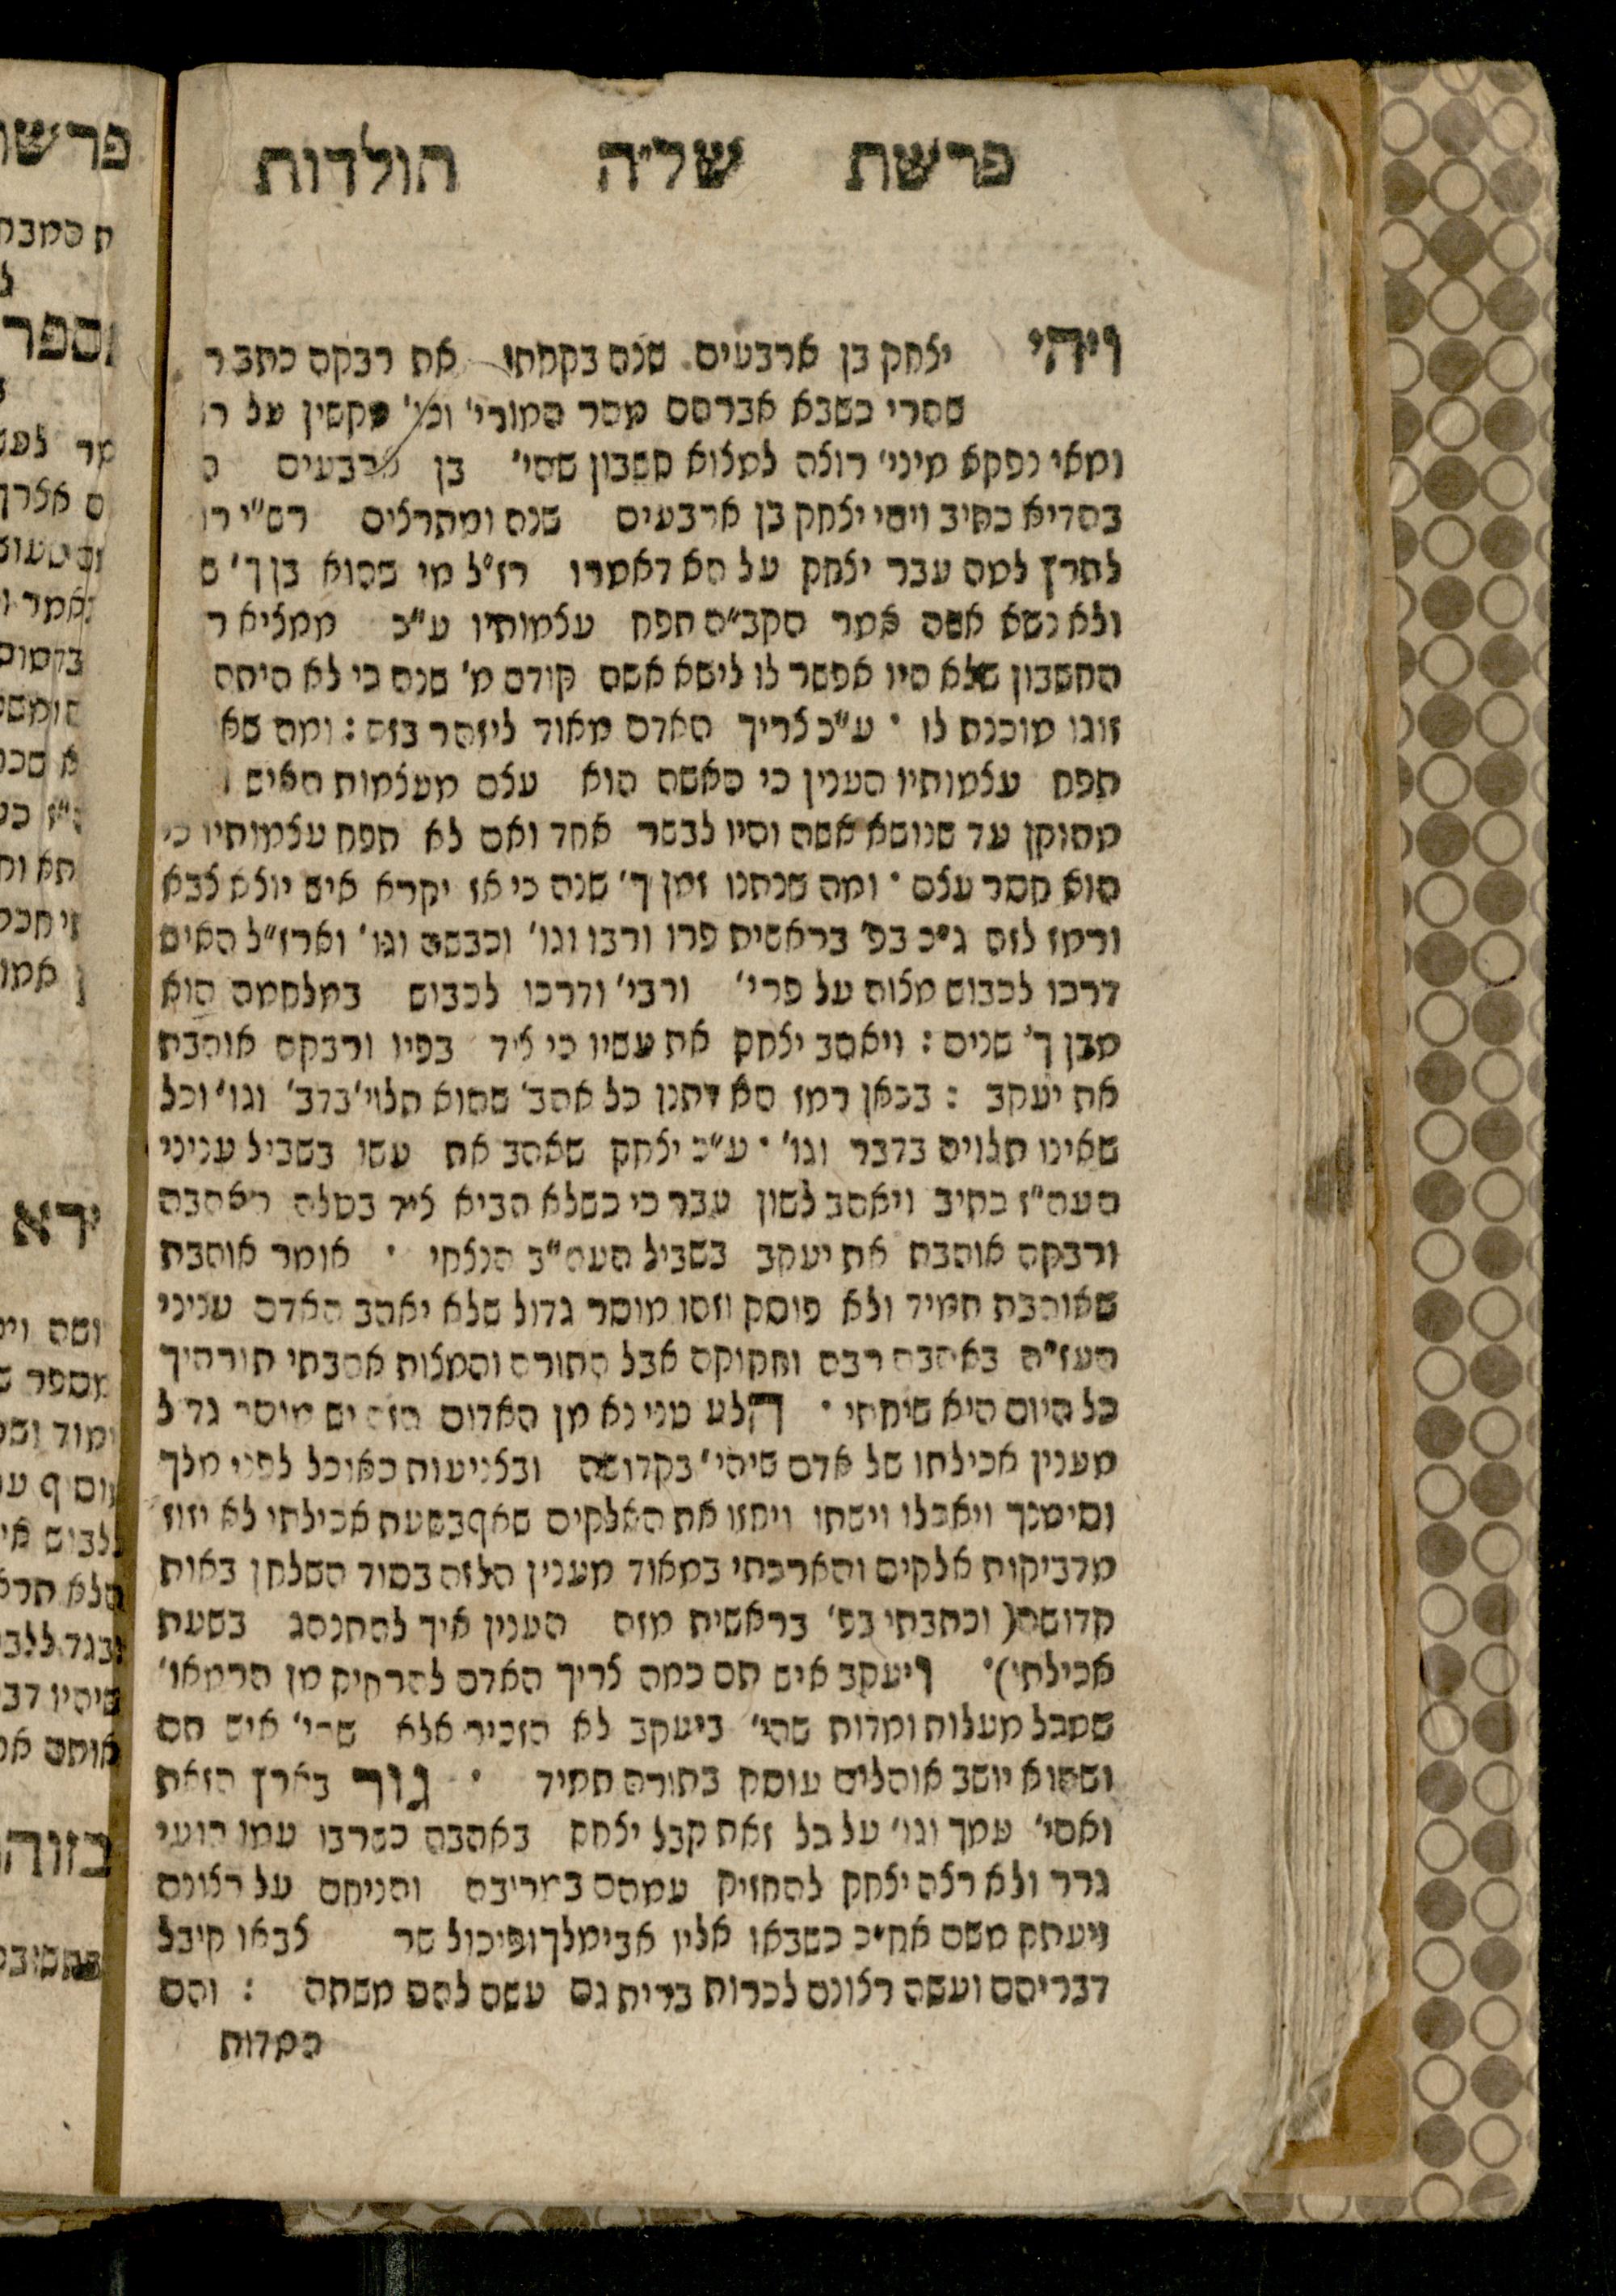 פרשת של״ה תולדות
ויהי יצחק בן ארבעים שנה בקחתו את רבקה כתב ר
שהרי כשבא אברהם מהר המורי׳ וכו׳ מקשין על
ומאי נפקא מיני׳ רוצה למצוא חשבון שהי׳ בן ארבעים
בהדיא כתיב ויהי יצחק בן ארבעים שנה ומתרצים רש״י
לתרץ למה עבר יצחק על הא דאמרו רז״ל מי שהוא בן ך׳
ולא נשא אשה אמר הקב״ה תפח עצמותיו ע״כ ממציא
החשבון שלא היו אפשר לו לישא אשה קודם מ׳ שנה כי לא היתה
זוגו מוכנת לו · ע״כ צריך האדם מאוד ליזהר בזה : ומה
תפח עצמותיו הענין כי האשה הוא עצם מעצמות האיש
מתוקן עד שנושא אשה והיו לבשר אחד ואם לא תפח עצמותיו כי
הוא חסר עצם · ומה שנתנו זמן ך׳ שנה כי אז יקרא איש יוצא צבא
ורמז לזה ג״כ בפ׳ בראשית פרו ורבו וגו׳ וכבשה וגו׳ וארז״ל האיש
דרכו לכבוש מצוה על פרי׳ ורבי׳ ודרכו לכבוש במלחמה הוא
מבן ך׳ שנים : ויאהב יצחק את עשיו כי ציד בפיו ורבקה אוהבת
את יעקב : בכאן רמז הא דתנן כל אהב׳ שהוא תלוי׳ בדב׳ וגו׳ וכל
שאינו תלוים בדבר וגו׳ · ע״כ יצחק שאהב את עשו בשביל עניני
העה״ז כתיב ויאהב לשון עבר כי כשלא הביא ציד בטלה האהבה
ורבקה אוהבת את יעקב בשביל העה״ב הנצחי · אומר אוהבת
שאוהבת תמיד ולא פוסק וזהו מוסר גדול שלא יאהב האדם עניני
העז״ה באהבה רבה וחקוקה אבל התורה והמצות אהבתי תורתיך
כל היום היא שיחתי · הלע טני נא מן האדום הזה יש מוסר גדול
מענין אכילתו של אדם שיהי׳ בקדושה ובצניעות כאוכל לפני מלך
וסימנך ויאכלו וישתו ויחזו את האלקים שאף בשעת אכילתי לא יזוז
מדביקות אלקים והארכתי במאוד מענין הלזה בסוד השלחן באות
קדושה (וכתבתי בפ׳ בראשית מזה הענין איך להתנהג בשעת
אכילתי)· ויעקב איש תם כמה צריך האדם להרחיק מן הרמאו׳
שמכל מעלות ומדות שהי׳ ביעקב לא הזכיר אלא שהי׳ איש תם
ושהוא יושב אוהלים עוסק בתורה תמיד · גור בארץ הזאת
ואהי׳ עמך וגו׳ על כל זאת קבל יצחק באהבה כשרבו עמו רועי
גרר ולא רצה יצחק להחזיק עמהם במריבה והניחם על רצונם
ויעתק משם אח״כ כשבאו אליו אבימלך ופיכול שר צבאו קיבל
דבריהם ועשה רצונם לכרות ברית גם עשה להם משתה : והם
כמדות